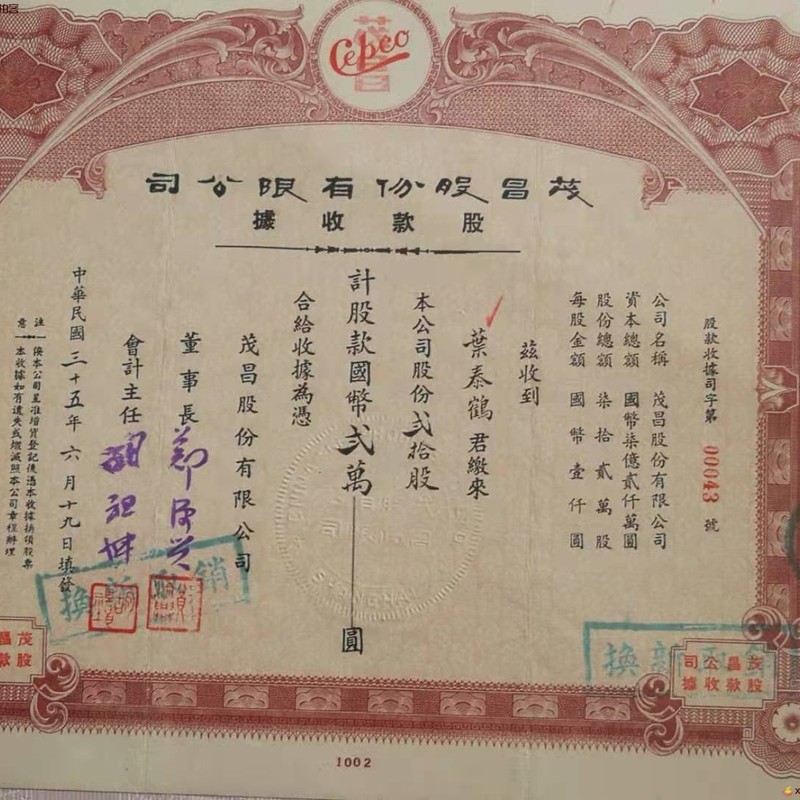 拍客
茂昌
Cepco
茂昌股份有限公司
股款收據
股款收據司字第 00043 號
公司名稱 茂昌股份有限公司
資本總額 國幣柒億貳仟萬圓
股份總額 柒拾貳萬股
每股金額 國幣壹仟圓
茲收到
葉泰鶴君繳來
本公司股份弍拾股
計股款國幣弍萬圓
合給收據為憑
茂昌股份有限公司
董事長 鄭源興
會計主任
中華民國三十五年六月十九日填發
注意
俟本公司呈准增資登記後憑本收據換領股票
本收據如有遺失或燬滅照本公司章程辦理
SHANGHAI
換新註銷
換新註銷
茂昌
股款
茂昌公司
股款收據
1002